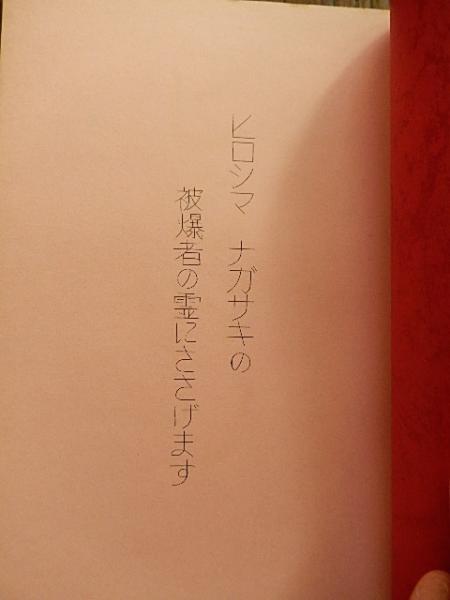 ヒロシマ　ナガサキの
被爆者の霊にささげます